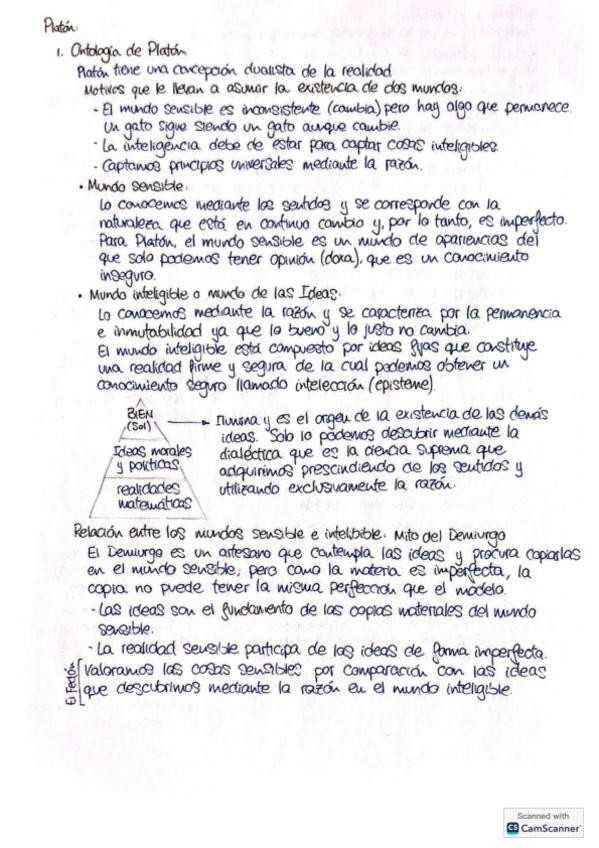 Platón:
1. Ontología de Platón
Platón tiene una concepción dualista de la realidad
Motivos que le llevan a asumar la existencia de dos mundos:
- El mundo sensible es inconsistente (cambia) pero hay algo que permanece.
Un gato sigue siendo un gato aunque cambie.
- La inteligencia debe de estar para captar cosas inteligibles
- Captamos principios universales mediante la razón.
• Mundo sensible:
Lo conocemos mediante los sentidos y se corresponde con la
naturaleza que está en continuo cambio y, por lo tanto, es imperfecto.
Para Platón, el mundo sensible es un mundo de apariencias del
que solo podemos tener opinión (doxa), que es un conocimiento
inseguro.
• Mundo inteligible o mundo de las Ideas:
Lo conocemos mediante la razón y se caracteriza por la permanencia
e inmutabilidad ya que lo bueno y lo justo no cambia.
El mundo inteligible está compuesto por ideas fijas que constituye
una realidad firme y segura de la cual podemos obtener un
conocimiento seguro llamado intelección (episteme).
BIEN
(Sol)
Ideas morales
y políticas
realidades
matemáticas
Ilumina y es el origen de la existencia de las demás
ideas. Solo lo podemos descubrir mediante la
dialéctica que es la ciencia suprema que
adquirimos prescindiendo de los sentidos y
utilizando exclusivamente la razón.
Relación entre los mundos sensible e intelibible: Mito del Demiurgo
El Demiurgo es un artesano que contempla las ideas y procura copiarlas
en el mundo sensible; pero como la materia es imperfecta, la
copia no puede tener la misma perfección que el modelo.
- Las ideas son el fundamento de las copias materiales del mundo
sensible.
- La realidad sensible participa de las ideas de forma imperfecta.
El Fedón
Valoramos las cosas sensibles por comparación con las ideas
que descubrimos mediante la razón en el mundo inteligible.
Scanned with
CS CamScanner